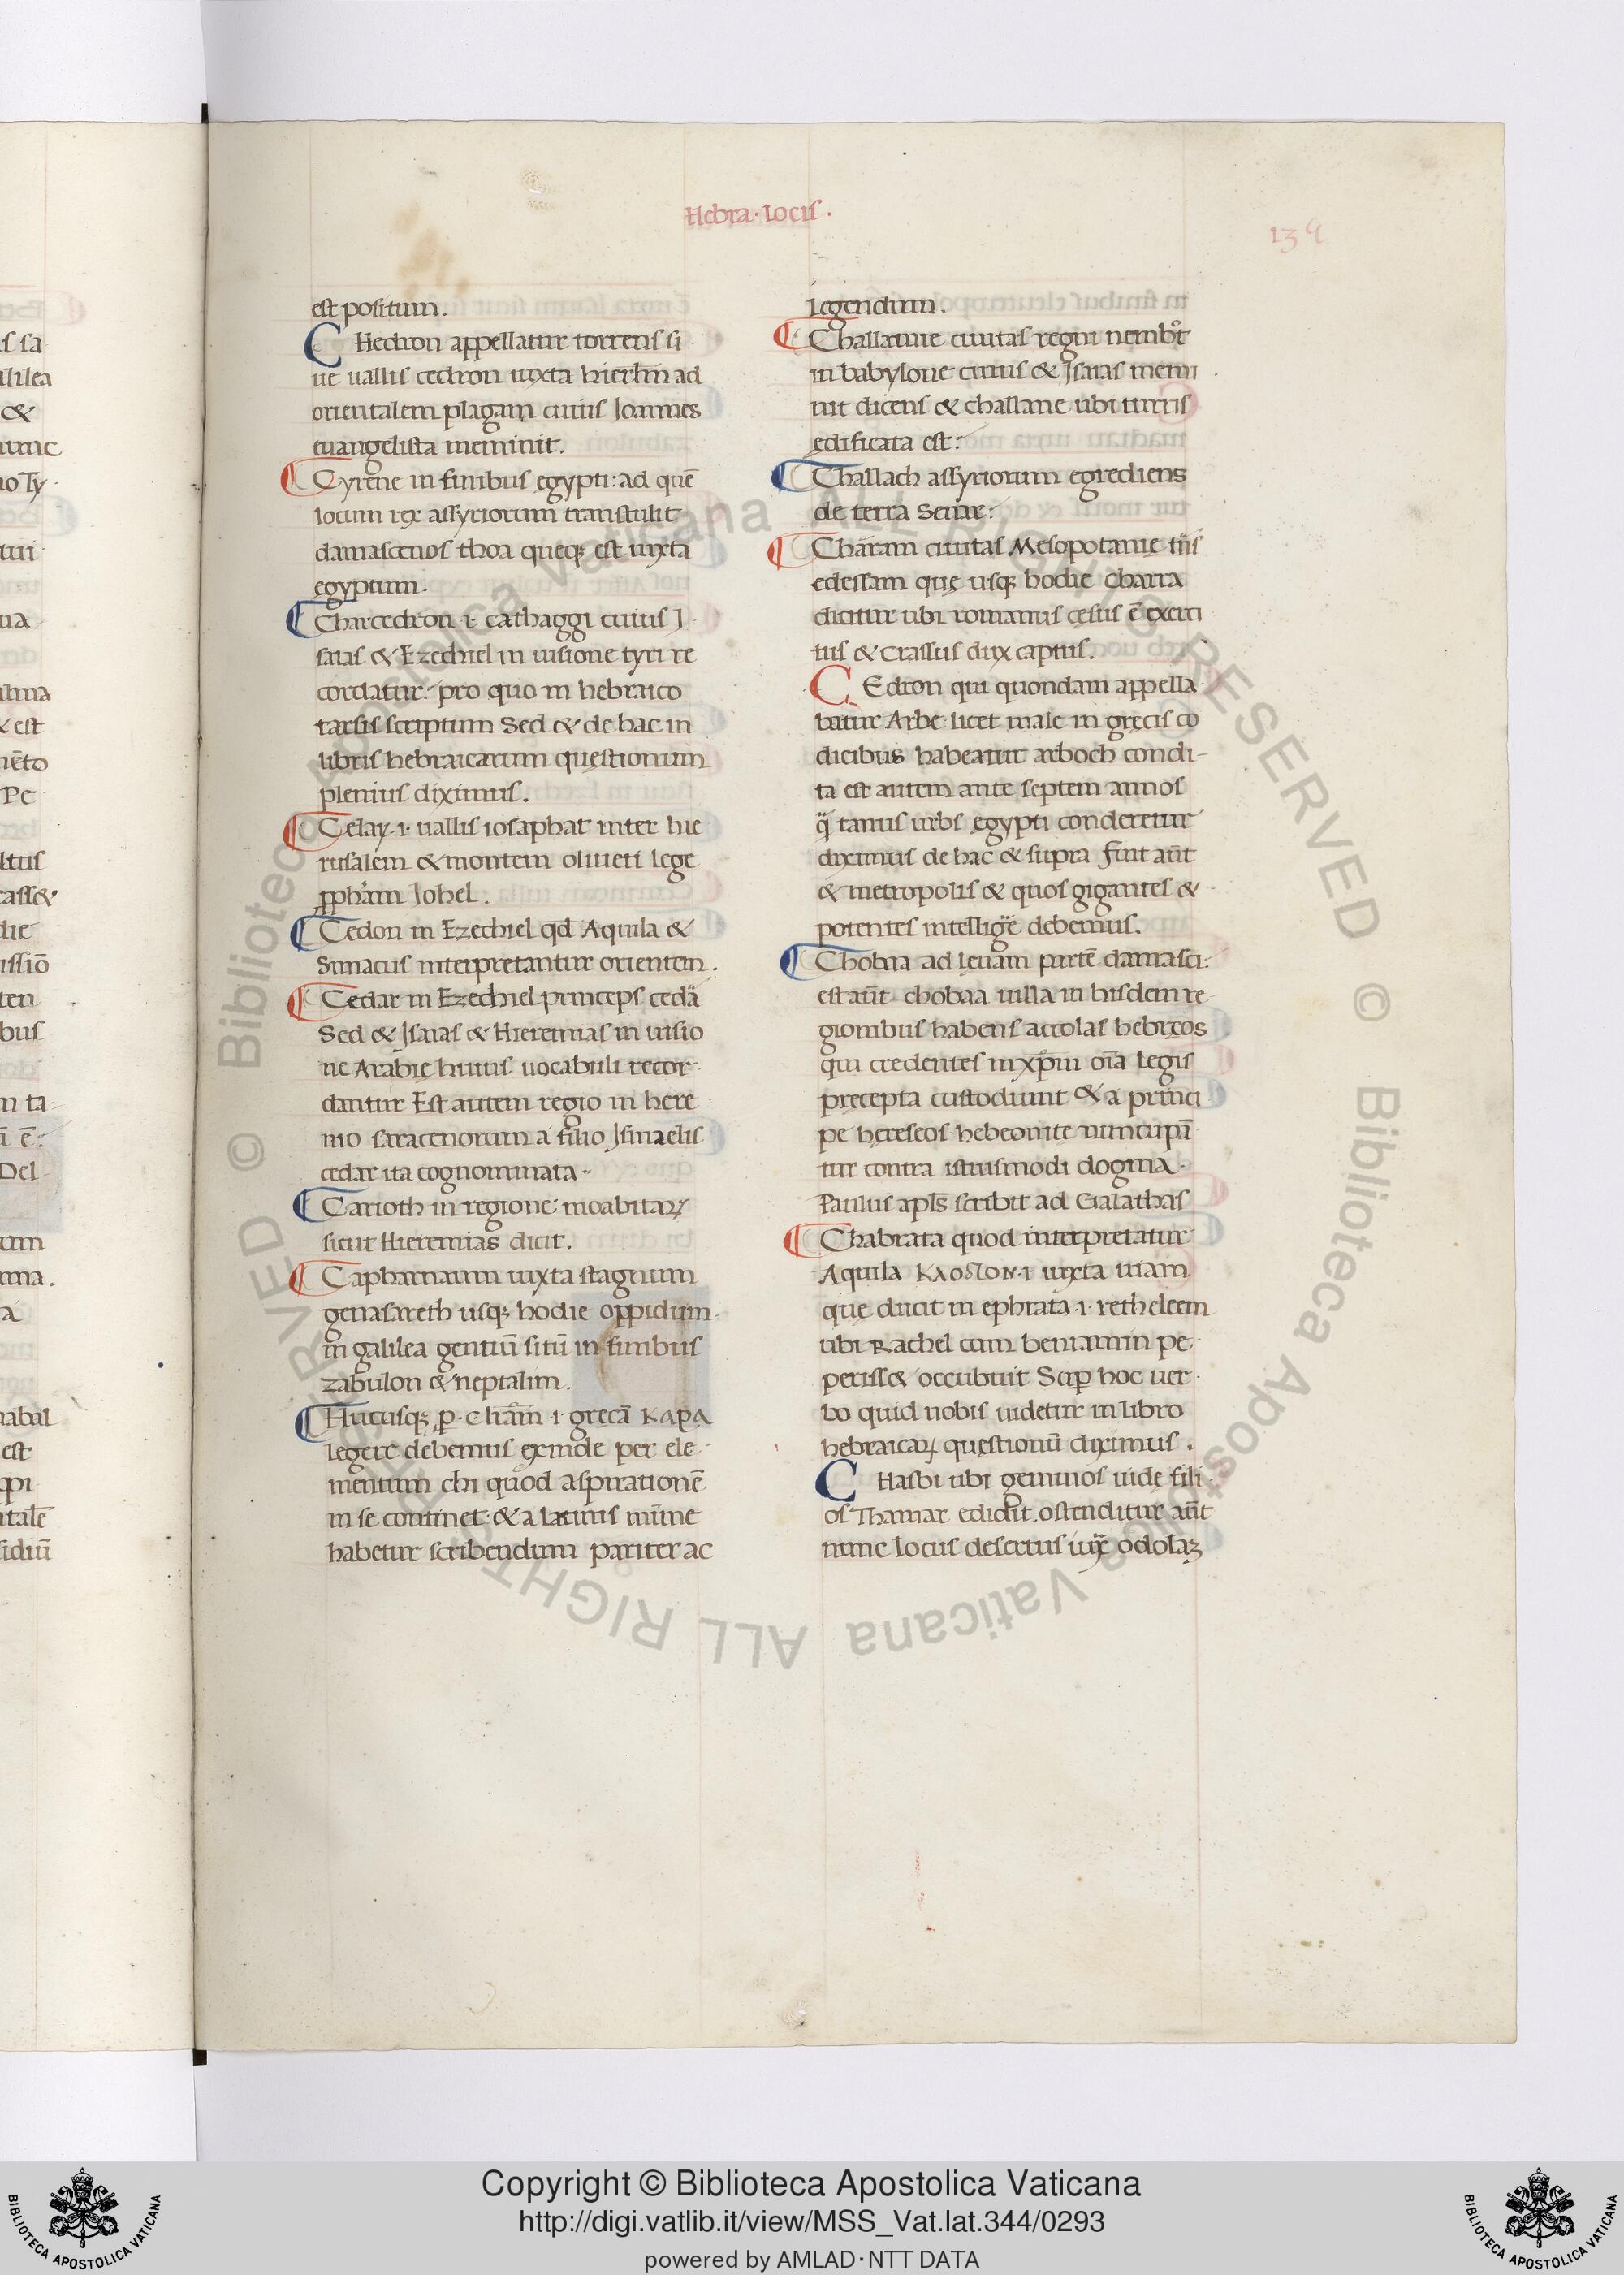 Hebra. Locis.
139
est positum.
CHedron appellatur torrens si
ue uallis cedron iuxta hierlm̄ ad
orientalem plagam cuius Joannes
euangelista meminit.
Cyrene in finibus egypti: ad quē
locum rex assyriorum transtulit
damascenos thoa queq; est iuxta
egyptum.
Charcedron .i. cathaggi cuius J
saias & Ezechiel in uisione tyri re
cordatur: pro quo in hebraico
tarsis scriptum Sed & de hac in
libris hebraicarum questionum
plenius diximus.
Celay .i. uallis iosaphat inter hie
rusalem & montem oliueti lege
ꝓpham Johel.
Cedon in Ezechiel qd Aquila &
Simacus interpretantur orientem.
Cedar in Ezechiel princeps cedã
Sed & Jsaias & Hieremias in uisio
ne Arabie huius uocabuli recor
dantur Est autem regio in here
mo saracenorum a filio Jsmaelis
cedar ita cognominata.
Carioth in regione: moabitaꝝ
sicut Hieremias dicit.
Capharnaum iuxta stagnum
genasareth usq; hodie oppidum
in galilea gentiū sitū in finibus
zabulon & neptalim.
Hucusq; p .c. lr̄am .i. grecā ΚΑΡΑ
legere debemus exinde per ele
mentum chi quod aspirationē
in se continet & a latinis mīme
habetur scribendum pariter ac
legendum.
Challanne ciuitas regni nembͦt
in babylone cuius & Jsaias memi
nit dicens & challane ubi turris
edificata est:
Challach assyriorum egrediens
de terra Senar:
Charam ciuitas Mesopotamie trn̄s
edessam que usq; hodie charra
dicitur ubi romanus cesus ē exerci
tus & Crassus dux captus.
CEdron qui quondam appella
batur Arbe licet male in grecis co
dicibus habeatur arboch condi-
ta est autem ante septem annos
q̃ tanus urbs egypti conderetur
diximus de hac & supra fuit aūt
& metropolis & quos gigantes &
potentes intellig̃e debemus.
Chobaa ad leuam partē damasci:
est aūt chobaa uilla in hisdem re
gionibus habens accolas hebreos
qui credentes in xp̄m oīa legis
precepta custodiunt & a princi
pe hereseos hebeonite nuncupā
tur contra istiusmodi dogma
Paulus apls̄ scribit ad Galathas
Chabrata quod interpretatur
Aquila ΚΑΟSΤΟΝ .i. iuxta uiam
que ducit in ephrata .i. retheleem
ubi Rachel cum beniamin pe
periss& occubuit Scip hoc uer
bo quid nobis uidetur in libro
hebraicaꝝ questionū diximus.
CHasbi ubi geminos uide fili
os Thamar edidit. ostenditur aūt
nunc locus desertus iux̃ odolaꝫ
Copyright © Biblioteca Apostolica Vaticana
http://digi.vatlib.it/view/MSS_Vat.lat.344/0293
powered by AMLAD・NTT DATA